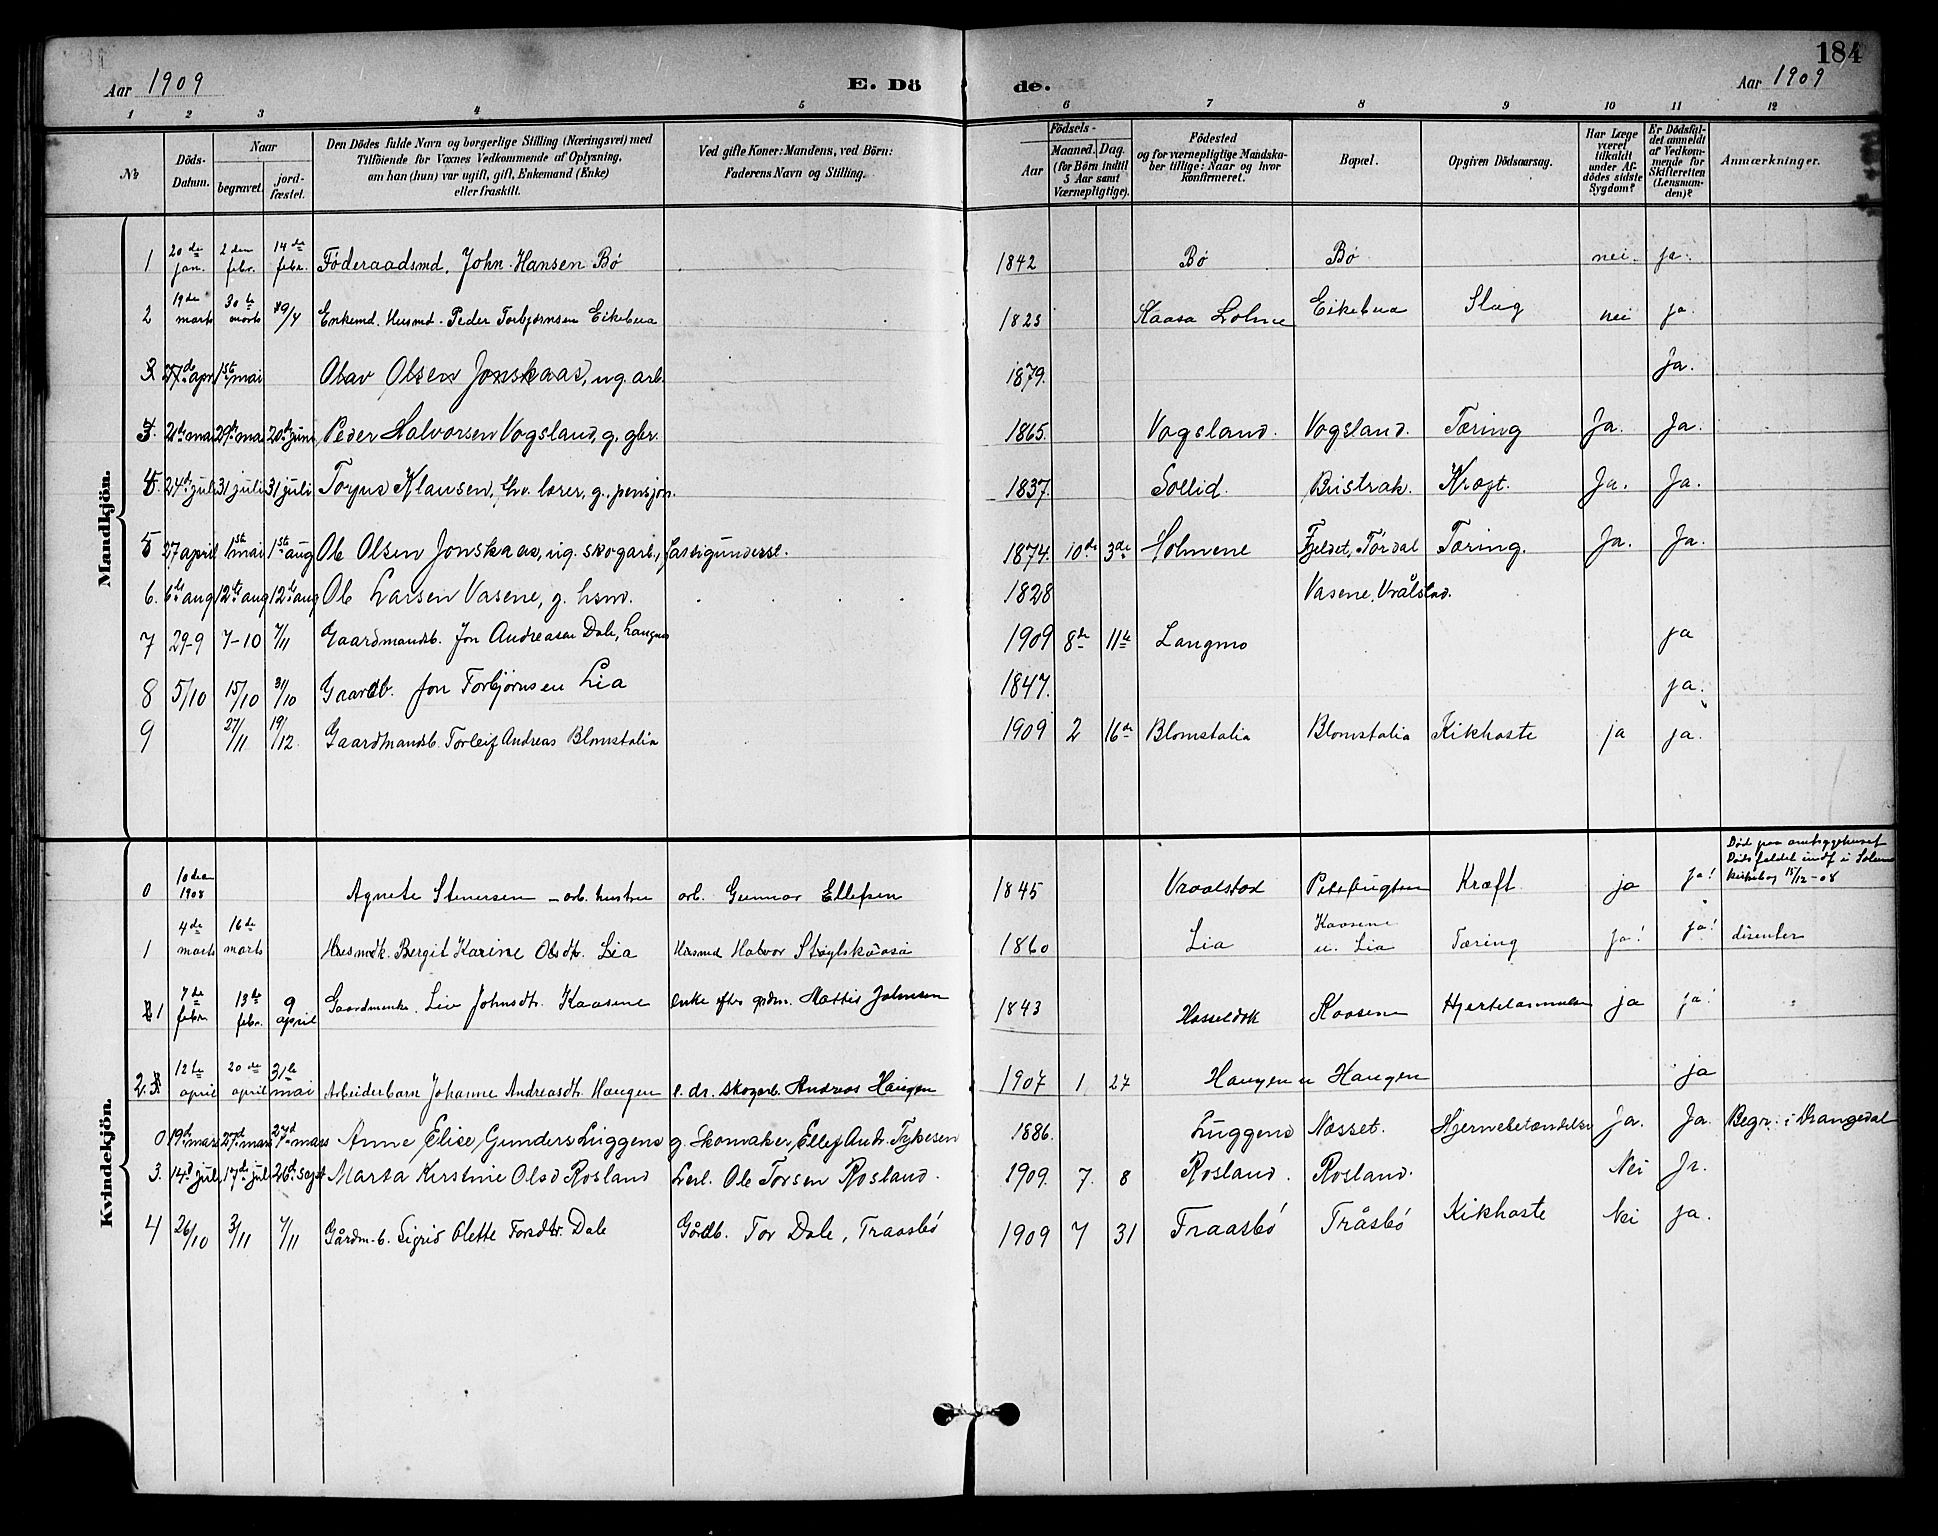 184
Aar 1909 E. Dö de. Aar 1909
1 2 3 4 5 6 7 8 9 10 11 12
No
Döds-Datum.
Naar
begravet.
jord-fæstet.
Den Dödes fulde Navn og borgerlige Stilling (Næringsvei) med
Tilföiende for Voxnes Vedkommende af Oplysning,
om han (hun) var ugift, gift, Enkemand (Enke)
eller fraskilt.
Ved gifte Koner: Mandens, ved Börn:
Faderens Navn og Stilling.
Födsels-
Aar Maaned. Dag.
(for Börn indtil
5 Aar samt
Værnepligtige).
Födested
og for værnepligtige Mandska-
ber tillige: Naar og hvor
konfirmeret.
Bopæl.
Opgiven Dödsaarsag.
Har Læge
været
tilkaldt
under Af-
dödes sidste
Sygdom?
Er Dödsfal-
det anmeldt
af Vedkom-
mende for
Skifteretten
(Lensman-
den)?
Anmærkninger.
Mandkjön.
1 20de jan. 2den febr. 14de febr. Föderaadsmd. John Hansen Bö 1842 Bö Bö nei. ja.
2 19de marts 30te marts 9/4 Enkemd. Husmd. Peder Torbjørnsen Eikebua 1823 Kaasa Eikebua Slag nei ja.
27de apr 1st mai Olav Olsen Jonskaas, ug. arb. 1879. Ja.
3. mai 29de mai 20de juni Peder Halvorsen Vogsland, g. gbr. 1865. Vogsland. Vogsland. Tæring Ja. Ja.
4. 24de juli 31 juli 31 juli Torjus Klausen, lærer, g. pensjon. 1837. Sollid. Bustrak. Kræft. Ja. Ja.
5 27 april 1st mai 1st aug Ole Olsen Jonskaas, ug. skogarb., fattigunderst. 1874. 10de 3de Holmene Fjeldet, Tördal Tæring. Ja. Ja.
6. 6te aug 12te aug 12te aug Ole Larsen Vasene, g. hsm. 1828 Vasene, Vrålstad.
7 29-9 7-10 7/11 Gaardmandsb. Jon Andreasen Dale, Langmo 1909 8de 11te Langmo ja
8 5/10 15/10 31/10 Gaardb. Jon Torbjørnsen Lia 1847. ja.
9 27/11 19/12. Gaardmandsb. Torleif Andreas Blomstalia 1909 2 16de Blomstalia Blomstalia Kikhoste ja ja.
Kvindekjön.
0 10 1908 Agnete Stenersen - arb. hustru arb. Gunnar Ellefsen 1845 Vraalstad Kræft. ja ja! Död paa amtssygehuset
Dödsfaldet indf i Solum
kirkebog 15/12-08
1 4de marts 16de marts Husmdk. Bergit Karine Olsdtr. Lia Husmd Halvor 1860 Lia Kaasene u. Lia Tæring ja! ja! disenter
1 7de febr. 13de febr. 9 april Gaardmenke. Liv Johnsdtr. Kaasene Enke efter grdm. Mattis Johnsen 1843 Hasseldok Kaasene Hjertelammelse ja ja!
2. 12te april 20de april 31te mai Arbeiderbarn Johanne Andreasdtr. Haugen f. dr. skogarb. Andreas Haugen 1907 1. 27 Haugen u Haugen ja
0 19de mars 27de mars 27de mars Anne Elise Gunders Luggens g. Skomaker, Ellef Andr. Tykesen 1886. Luggens Næsset. Hjernebetændelse Ja. Ja. Begr. i Drangedal
3. 14de juli 17de juli 26de sept Marta Kirstine Olsd Rosland Leil. Ole Torsen Rosland. 1909. 7. 8 Rosland. Rosland. Nei Ja.
4 26/10 3/11 7/11 Gårdm. b. Sigrid Olette Torsdtr. Dale Gårdb. Tor Dale, Traasbö 1909 7 31 Traasbö Tråsbö Kikhoste Nei ja.